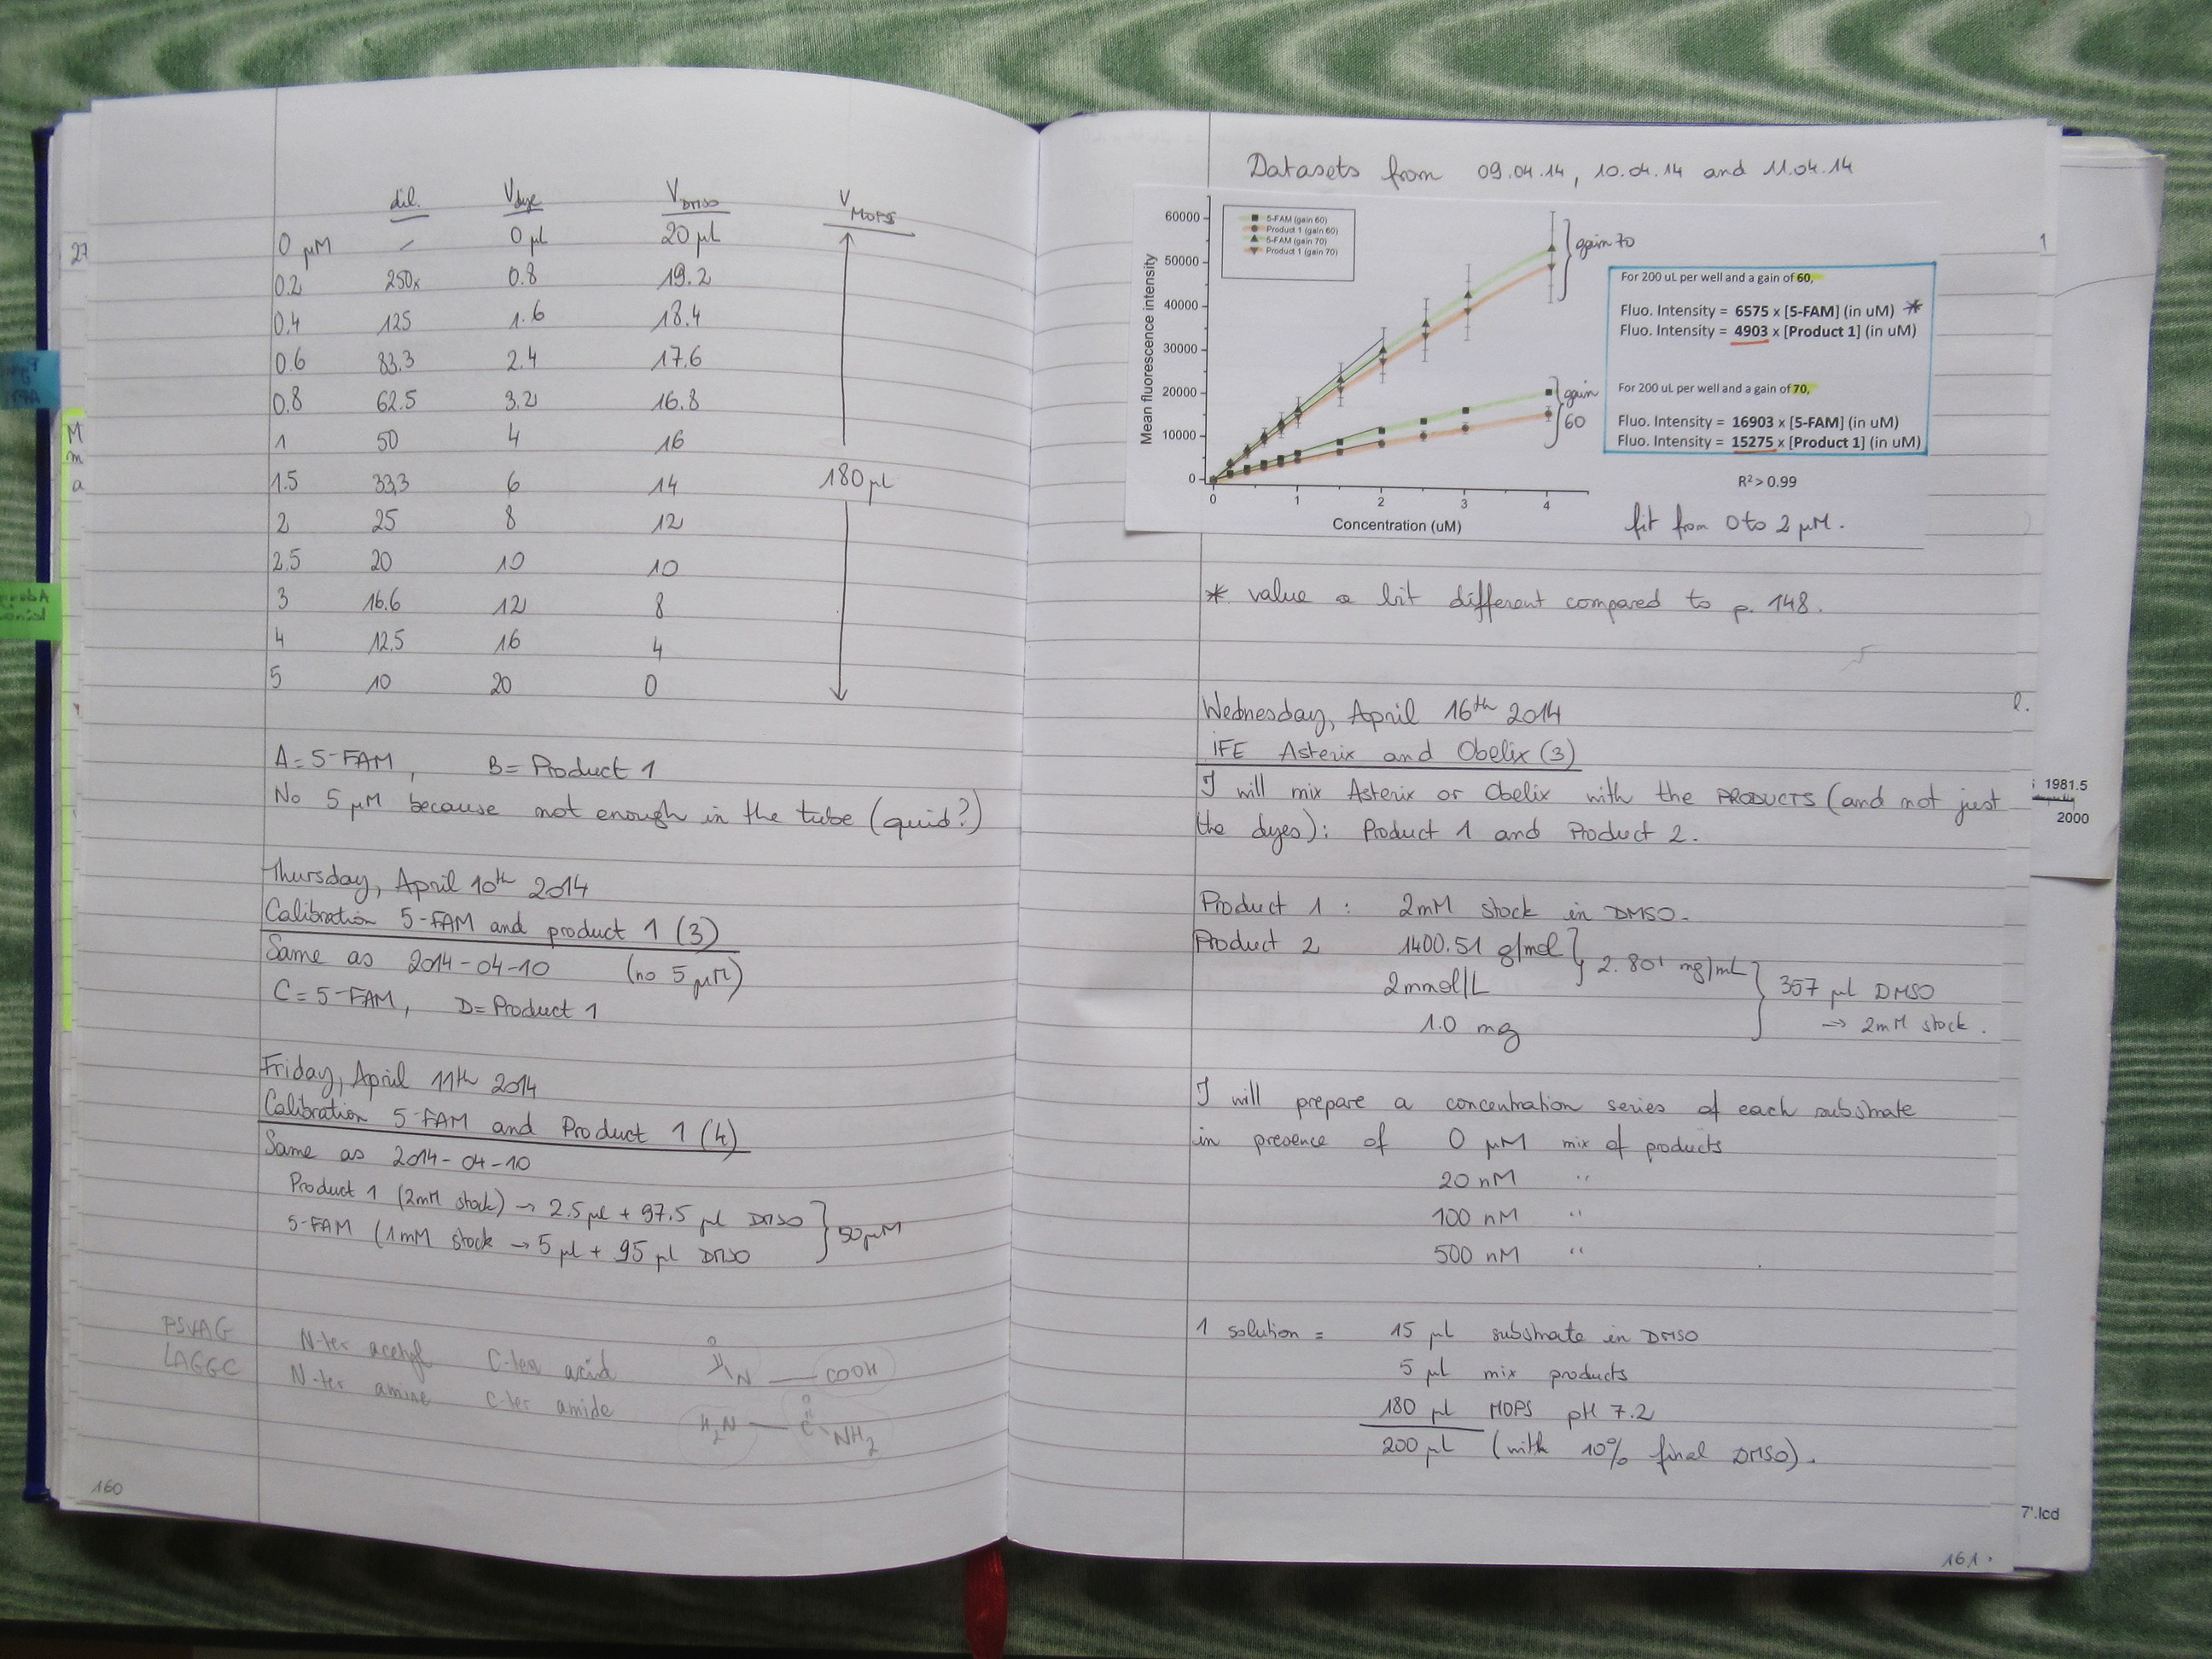 dil. Vdye VDMSO VMOPS
0 µM - 0 µl 20 µl
0.2 250x 0.8 19.2
0.4 125 1.6 18.4
0.6 83.3 2.4 17.6
0.8 62.5 3.2 16.8
1 50 4 16
1.5 33,3 6 14 180 µl
2 25 8 12
2.5 20 10 10
3 16.6 12 8
4 12.5 16 4
5 10 20 0
A = 5-FAM, B = Product 1
No 5 µM because not enough in the tube (quid?)
Thursday, April 10th 2014
Calibration 5-FAM and product 1 (3)
Same as 2014-04-10 (no 5 µM)
C = 5-FAM, D = Product 1
Friday, April 11th 2014
Calibration 5-FAM and Product 1 (4)
Same as 2014-04-10
Product 1 (2mM stock) → 2.5 µl + 97.5 µl DMSO
5-FAM (1mM stock → 5 µl + 95 µl DMSO } 50 µM
PSVAG
LAGGC
N-ter acetyl C-ter acid
N-ter amine C-ter amide
O
N — COOH
O
H2N — C NH2
160
27
M
m
a
Datasets from 09.04.14, 10.04.14 and 11.04.14
5-FAM (gain 60)
Product 1 (gain 60)
5-FAM (gain 70)
Product 1 (gain 70)
Mean fluorescence intensity
60000
50000
40000
30000
20000
10000
0
0 1 2 3 4
Concentration (uM)
gain 70
gain
60
For 200 uL per well and a gain of 60,
Fluo. Intensity = 6575 x [5-FAM] (in uM) *
Fluo. Intensity = 4903 x [Product 1] (in uM)
For 200 uL per well and a gain of 70,
Fluo. Intensity = 16903 x [5-FAM] (in uM)
Fluo. Intensity = 15275 x [Product 1] (in uM)
R² > 0.99
fit from 0 to 2 µM.
* value a bit different compared to p. 148.
Wednesday, April 16th 2014
IFE Asterix and Obelix (3)
I will mix Asterix or Obelix with the PRODUCTS (and not just
the dyes): Product 1 and Product 2.
Product 1 : 2mM stock in DMSO.
Product 2 1400.51 g/mol } 2.801 mg/mL
2mmol/L } 357 µl DMSO
1.0 mg → 2mM stock.
I will prepare a concentration series of each substrate
in presence of 0 µM mix of products
20 nM "
100 nM "
500 nM "
1 solution = 15 µl substrate in DMSO
5 µl mix products
180 µl MOPS pH 7.2
200 µl (with 10% final DMSO).
161.
1981.5
2000
7'.lcd